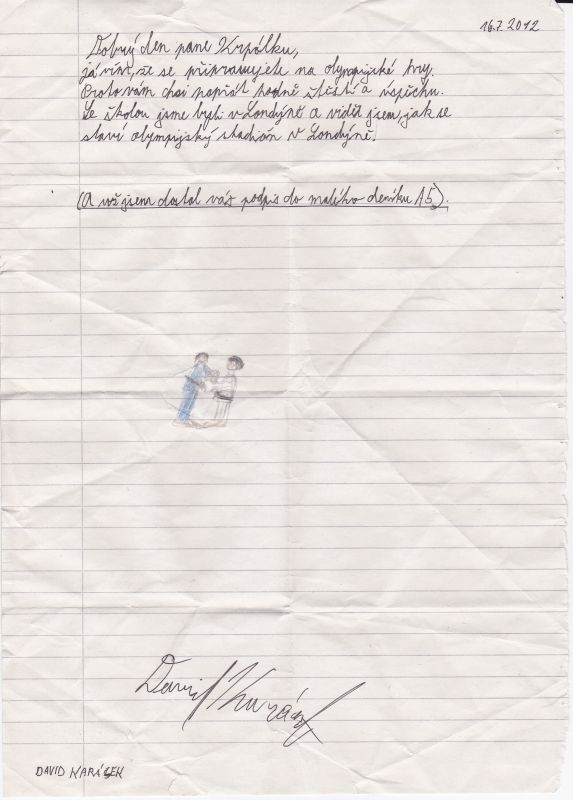 16.7.2012
Dobrý den pane Krpálku,
já vím, že se připravujete na olympijské hry.
Proto vám chci popřát hodně štěstí a úspěchu.
Se školou jsme byli v Londýně a viděl jsem, jak se
staví olympijský stadión v Londýně.
(A už jsem dostal váš podpis do malího deníku A5).
David
DAVID KARÁSEK